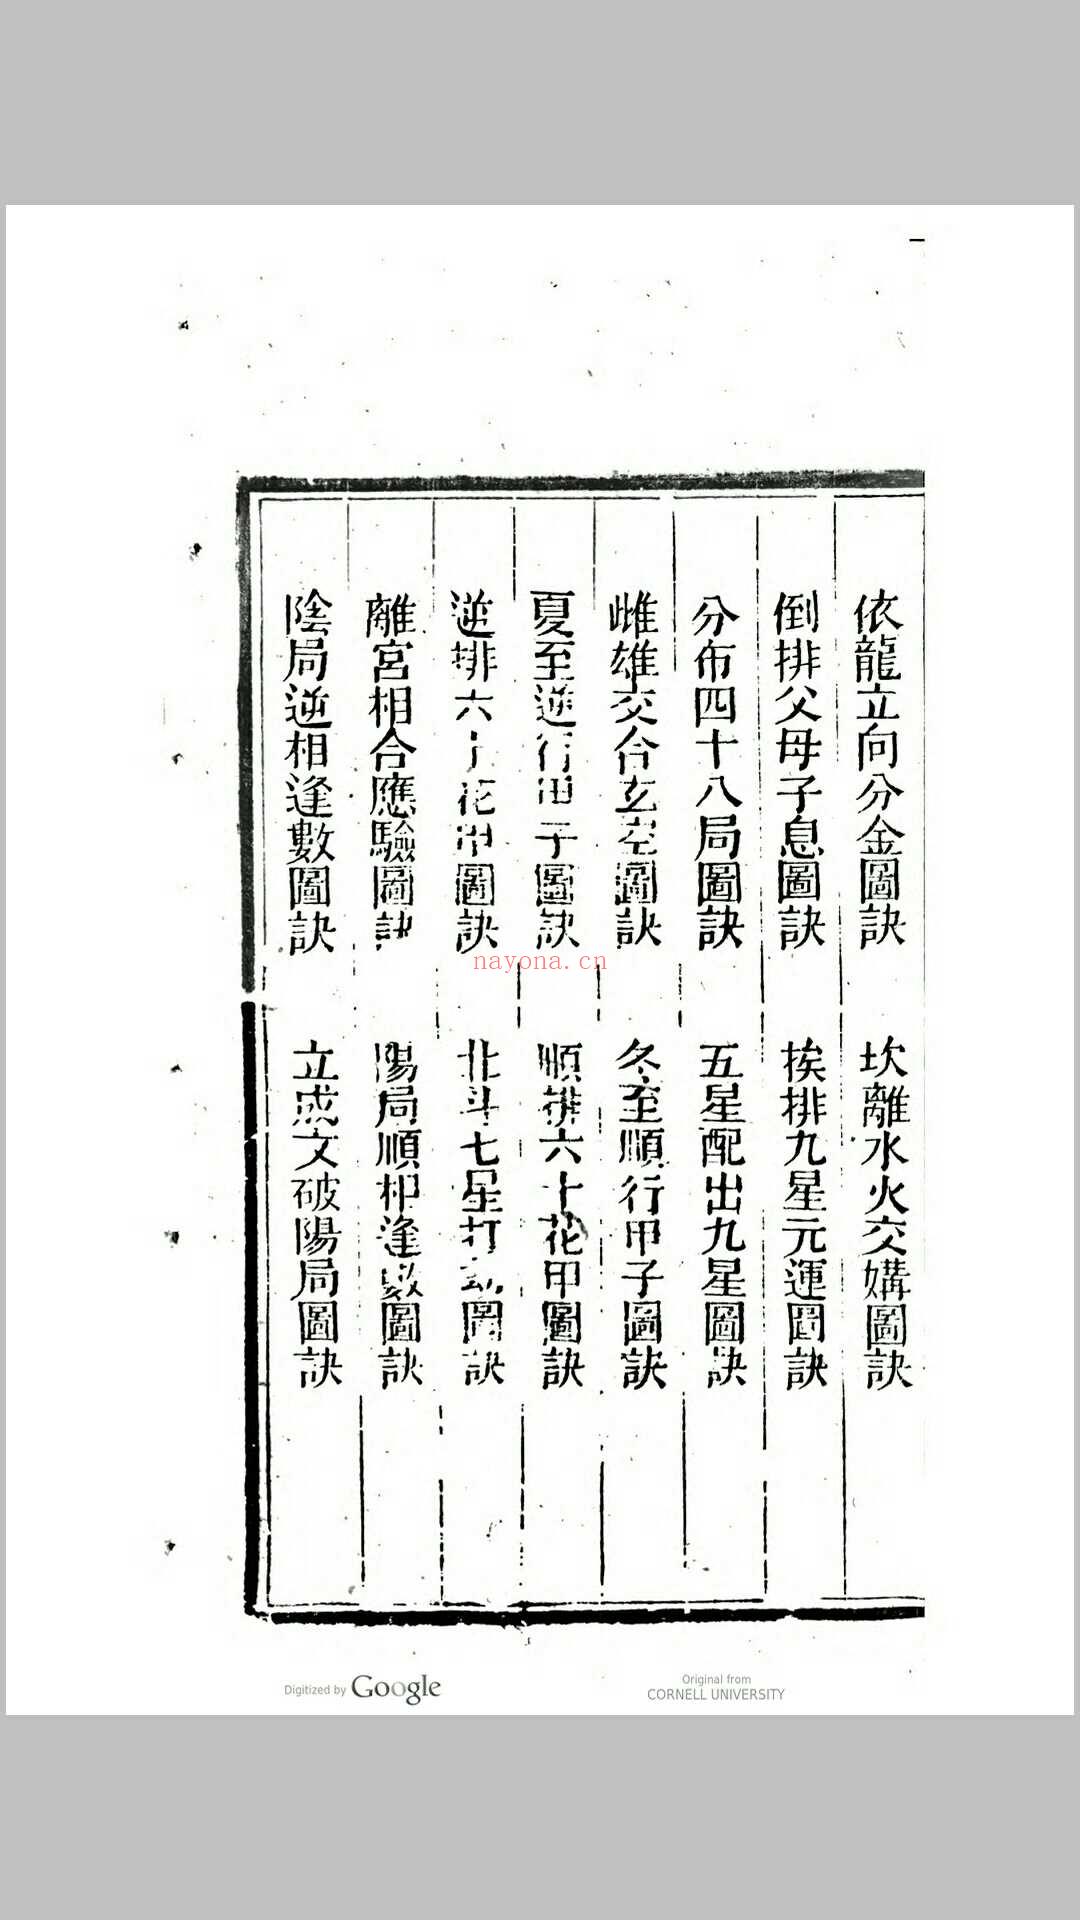 依龍立向分金圖訣
坎離水火交媾圖訣
倒排父母子息圖訣
挨排九星元運圖訣
分布四十八局圖訣
五星配出九星圖訣
雌雄交合玄空圖訣
冬至順行甲子圖訣
夏至逆行甲子圖訣
順排六十花甲圖訣
逆排六十花甲圖訣
北斗七星打劫圖訣
離宮相合應驗圖訣
陽局順相逢數圖訣
陰局逆相逢數圖訣
立成文破陽局圖訣
nayona.cn
Digitized by Google
Original from
CORNELL UNIVERSITY